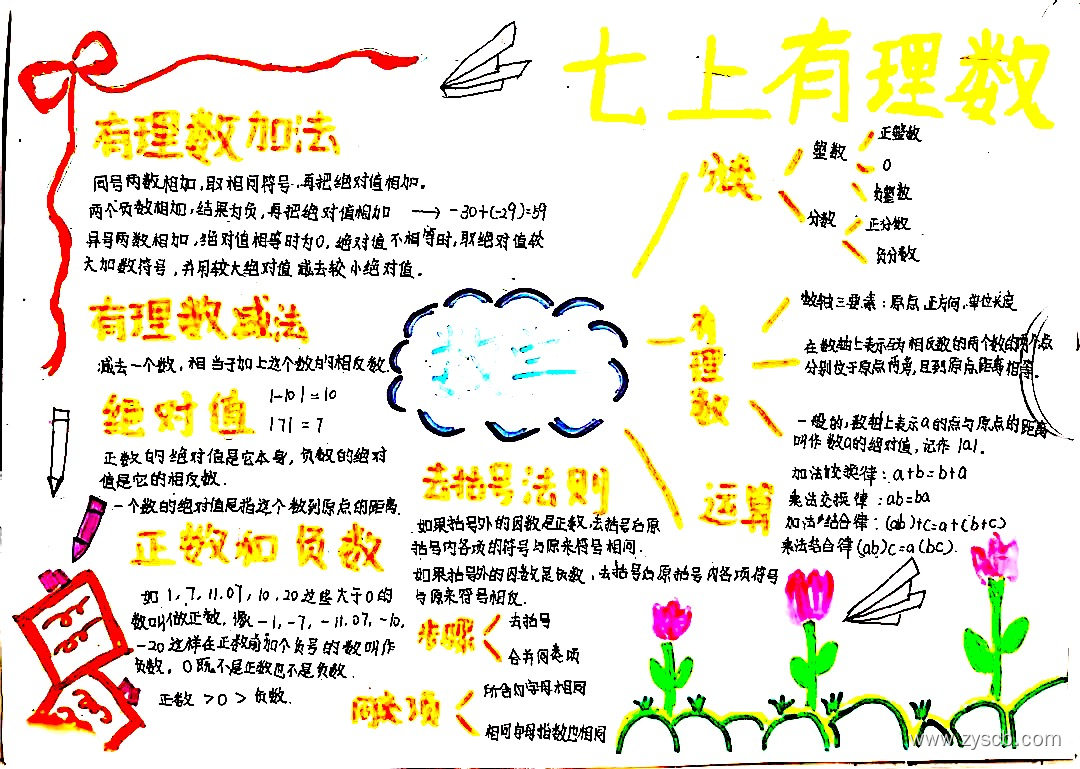 七上有理数
有理数加法
同号两数相加,取相同符号,再把绝对值相加。
两个负数相加,结果为负,再把绝对值相加 → -30+(-29)=59
异号两数相加,绝对值相等时为0,绝对值不相等时,取绝对值较
大加数符号,并用较大绝对值减去较小绝对值。
有理数减法
减去一个数,相当于加上这个数的相反数.
绝对值
|-10|=10
|7|=7
正数的绝对值是它本身,负数的绝对
值是它的相反数.
一个数的绝对值是指这个数到原点的距离.
正数和负数
如1,7,11.07,10,20这些大于0的
数叫做正数,像-1,-7,-11.07,-10,
-20这样在正数前加个负号的数叫作
负数。0既不是正数也不是负数.
正数>0>负数.
数学
去括号法则
如果括号外的因数是正数,去括号后原
括号内各项的符号与原来符号相同.
如果括号外的因数是负数,去括号后原括号内各项符号
与原来符号相反.
步骤
去括号
合并同类项
同类项
所含的字母相同
相同字母指数也相同
分类
整数
正整数
0
负整数
分数
正分数
负分数
有理数
数轴三要素:原点,正方向,单位长度
在数轴上表示互为相反数的两个数的两个点
分别位于原点两旁,且到原点距离相等。
一般的,数轴上表示a的点与原点的距离
叫作数a的绝对值,记作|a|.
运算
加法交换律:a+b=b+a
乘法交换律:ab=ba
加法结合律:(ab)+c=a+(b+c)
乘法结合律(ab)c=a(bc).
www.zyscb.com